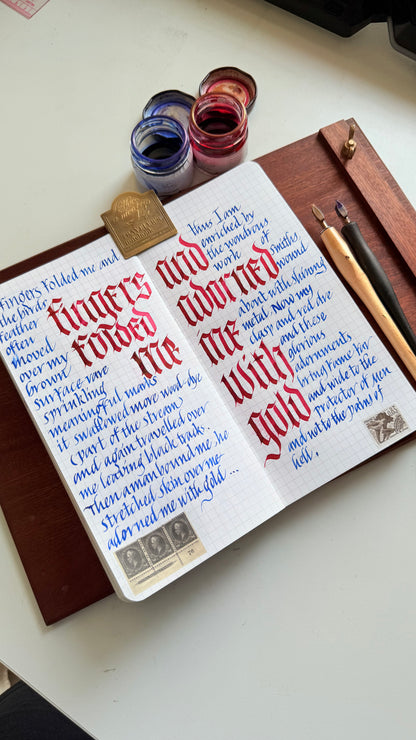 fingers folded me and
the birds
feather
often
moved
over my
brown
surface
sprinkling
meaningful marks
it swallowed more wood-dye
(part of the stream)
and again travelled over
me leaving black tracks.
Then a man bound me, he
stretched skin over me
adorned me with gold ...
fingers
folded
me
thus I am
enriched by
the wondrous
work of
smiths
wound
about with shining
metal. Now my
clasp and red dye
and these
glorious
adornments
bring fame far
and wide to the
protector of men
and not to the pains of
hell.
and
adorned
me
with
gold